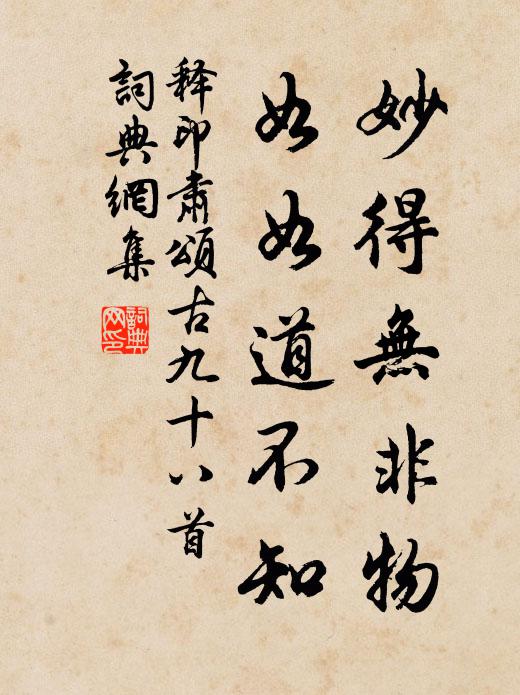 妙得無非物
如如道不知
释印肅頌古九十八首
詞典網集
詞典网印